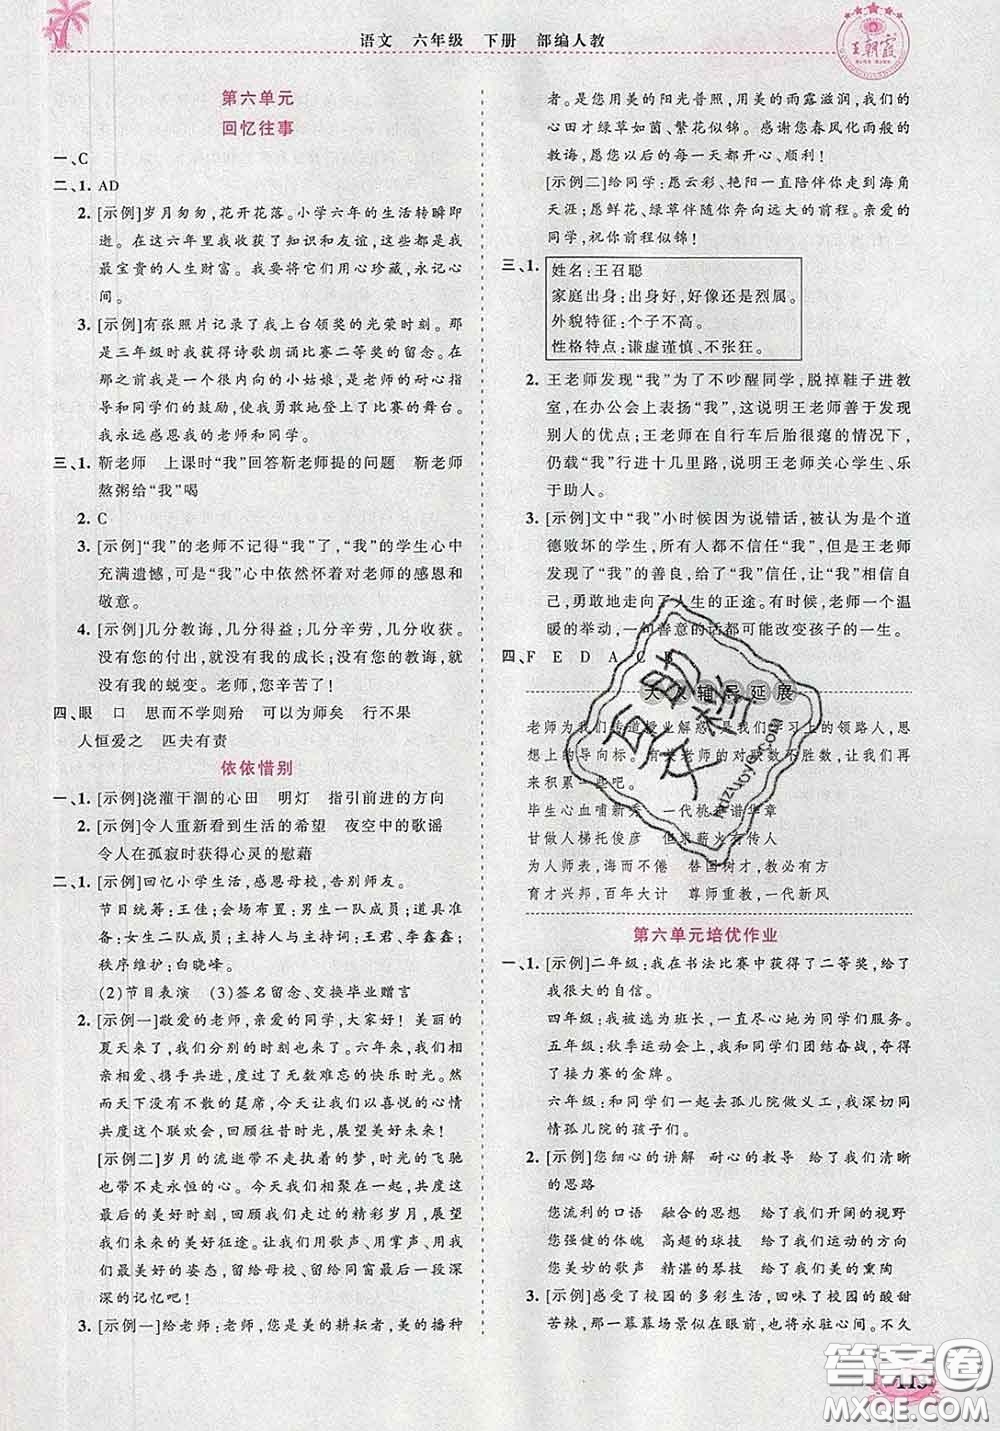 语文 六年级 下册 部编人教
王朝霞
第六单元
回忆往事
一、C
二、1. AD
2. [示例]岁月匆匆,花开花落。小学六年的生活转瞬即
逝。在这六年里我收获了知识和友谊,这些都是我
最宝贵的人生财富。我要将它们用心珍藏,永记心
间。
3. [示例]有张照片记录了我上台领奖的光荣时刻。那
是三年级时我获得诗歌朗诵比赛二等奖的留念。在
那之前我是一个很内向的小姑娘,是老师的耐心指
导和同学们的鼓励,使我勇敢地登上了比赛的舞台。
我永远感恩我的老师和同学。
三、1. 靳老师 上课时“我”回答靳老师提的问题 靳老师
熬粥给“我”喝
2. C
3. [示例]“我”的老师不记得“我”了,“我”的学生心中
充满遗憾,可是“我”心中依然怀着对老师的感恩和
敬意。
4. [示例]几分教诲,几分得益;几分辛劳,几分收获。
没有您的付出,就没有我的成长;没有您的教诲,就
没有我的蜕变。老师,您辛苦了!
四、眼 口 思而不学则殆 可以为师矣 行不果
人恒爱之 匹夫有责
依依惜别
一、1. [示例]浇灌干涸的心田 明灯 指引前进的方向
2. [示例]令人重新看到生活的希望 夜空中的歌谣
令人在孤寂时获得心灵的慰藉
二、1. [示例]回忆小学生活,感恩母校,告别师友。
节目统筹:王佳;会场布置:男生一队成员;道具准
备:女生二队成员;主持人与主持词:王君、李鑫鑫;
秩序维护:白晓峰。
(2)节目表演 (3)签名留念、交换毕业赠言
2. [示例一]敬爱的老师,亲爱的同学,大家好!美丽的
夏天来了,我们分别的时刻也来了。六年来,我们相
亲相爱、携手共进,度过了无数难忘的快乐时光。然
而天下没有不散的筵席,今天让我们以喜悦的心情
共度这个联欢会,回顾往昔时光,展望美好未来!
[示例二]岁月的流逝带不走执着的梦,时光的飞驰
也带不走永恒的心。今天我们相聚在一起,共度这
最后的美好时刻,回顾我们走过的精彩岁月,展望
未来的美好征途。让我们用歌声、用掌声、用我们
最美好的姿态,留给母校、留给同窗最后一段深
深的记忆吧!
3. [示例一]给老师:老师,您是美的耕耘者,美的播种
者。是您用美的阳光普照,用美的雨露滋润,我们的
心田才绿草如茵、繁花似锦。感谢您春风化雨般的
教诲,愿您以后的每一天都开心、顺利!
[示例二]给同学:愿云彩、艳阳一直陪伴你走到海角
天涯;愿鲜花、绿草伴随你奔向远大的前程。亲爱的
同学,祝你前程似锦!
三、1. 姓名:王召聪
家庭出身:出身好,好像还是烈属。
外貌特征:个子不高。
性格特点:谦虚谨慎、不张狂。
2. 王老师发现“我”为了不吵醒同学,脱掉鞋子进教
室,在办公会上表扬“我”,这说明王老师善于发现
别人的优点;王老师在自行车后胎很瘪的情况下,
仍载“我”行进十几里路,说明王老师关心学生、乐
于助人。
3. [示例]文中“我”小时候因为说错话,被认为是个道
德败坏的学生,所有人都不信任“我”,但是王老师
发现了“我”的善良,给了“我”信任,让“我”相信自
己,勇敢地走向了人生的正途。有时候,老师一个温
暖的举动,一句善意的话都可能改变孩子的一生。
四、F E D A C B
辅导延展
老师为我们传道授业解惑,是我们学习上的领路人,思
想上的导向标。有关老师的对联数不胜数,让我们再
来积累一些吧。
毕生心血哺新秀 一代桃李谱华章
甘做人梯托俊彦 但求薪火有传人
为人师表,诲而不倦 替国树才,教必有方
育才兴邦,百年大计 尊师重教,一代新风
第六单元培优作业
一、1. [示例]二年级:我在书法比赛中获得了二等奖,给了
我很大的自信。
四年级:我被选为班长,一直尽心地为同学们服务。
五年级:秋季运动会上,我和同学们团结奋战,夺得
了接力赛的金牌。
六年级:和同学们一起去孤儿院做义工,我深深同
情孤儿院的孩子们。
2. [示例]您细心的讲解 耐心的教导 给了我们清晰
的思路
您流利的口语 融合的思想 给了我们开阔的视野
您强健的体魄 高超的球技 给了我们运动的方向
您美妙的歌声 精湛的琴技 给了我们美的熏陶
3. [示例]感受了校园的多彩生活,尝尽了校园的酸甜
苦辣,那一幕幕场景似在眼前,也将永驻心间。不久
答案卷
MXQE.COM